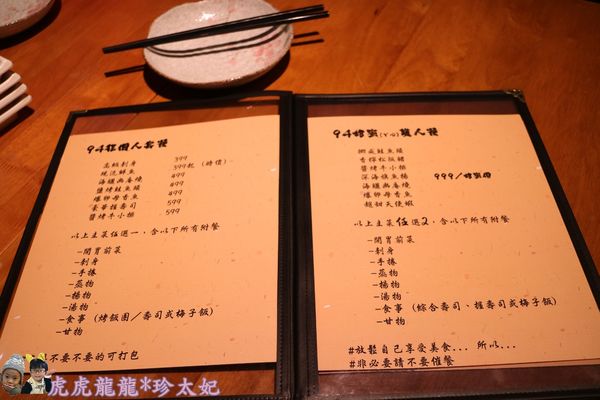 94狂個人套餐
高級刺身 399
現流鮮魚 399起 (時價)
海鹽幽庵燒 499
鹽烤鮭魚頭 499
爆卵母香魚 499
豪華握壽司 599
醬烤牛小排 599
以上主菜任選一，含以下所有附餐
-開胃前菜
-刺身
-手捲
-蒸物
-揚物
-湯物
-食事 (烤飯糰/壽司或梅子飯)
-甘物
不要不要的可打包
94蜂蜜(YO)雙人餐
椒鹽鮭魚頭
香檸松阪豬
醬烤牛小排
深海旗魚腸
海鹽幽庵燒
爆卵母香魚
超甜天使蝦
999/蜂蜜價
以上主菜任選2，含以下所有附餐
-開胃前菜
-刺身
-手捲
-蒸物
-揚物
-湯物
-食事 (綜合壽司、握壽司或梅子飯)
-甘物
#放鬆自己享受美食... 所以...
#非必要請不要催餐
虎虎龍龍*珍太妃